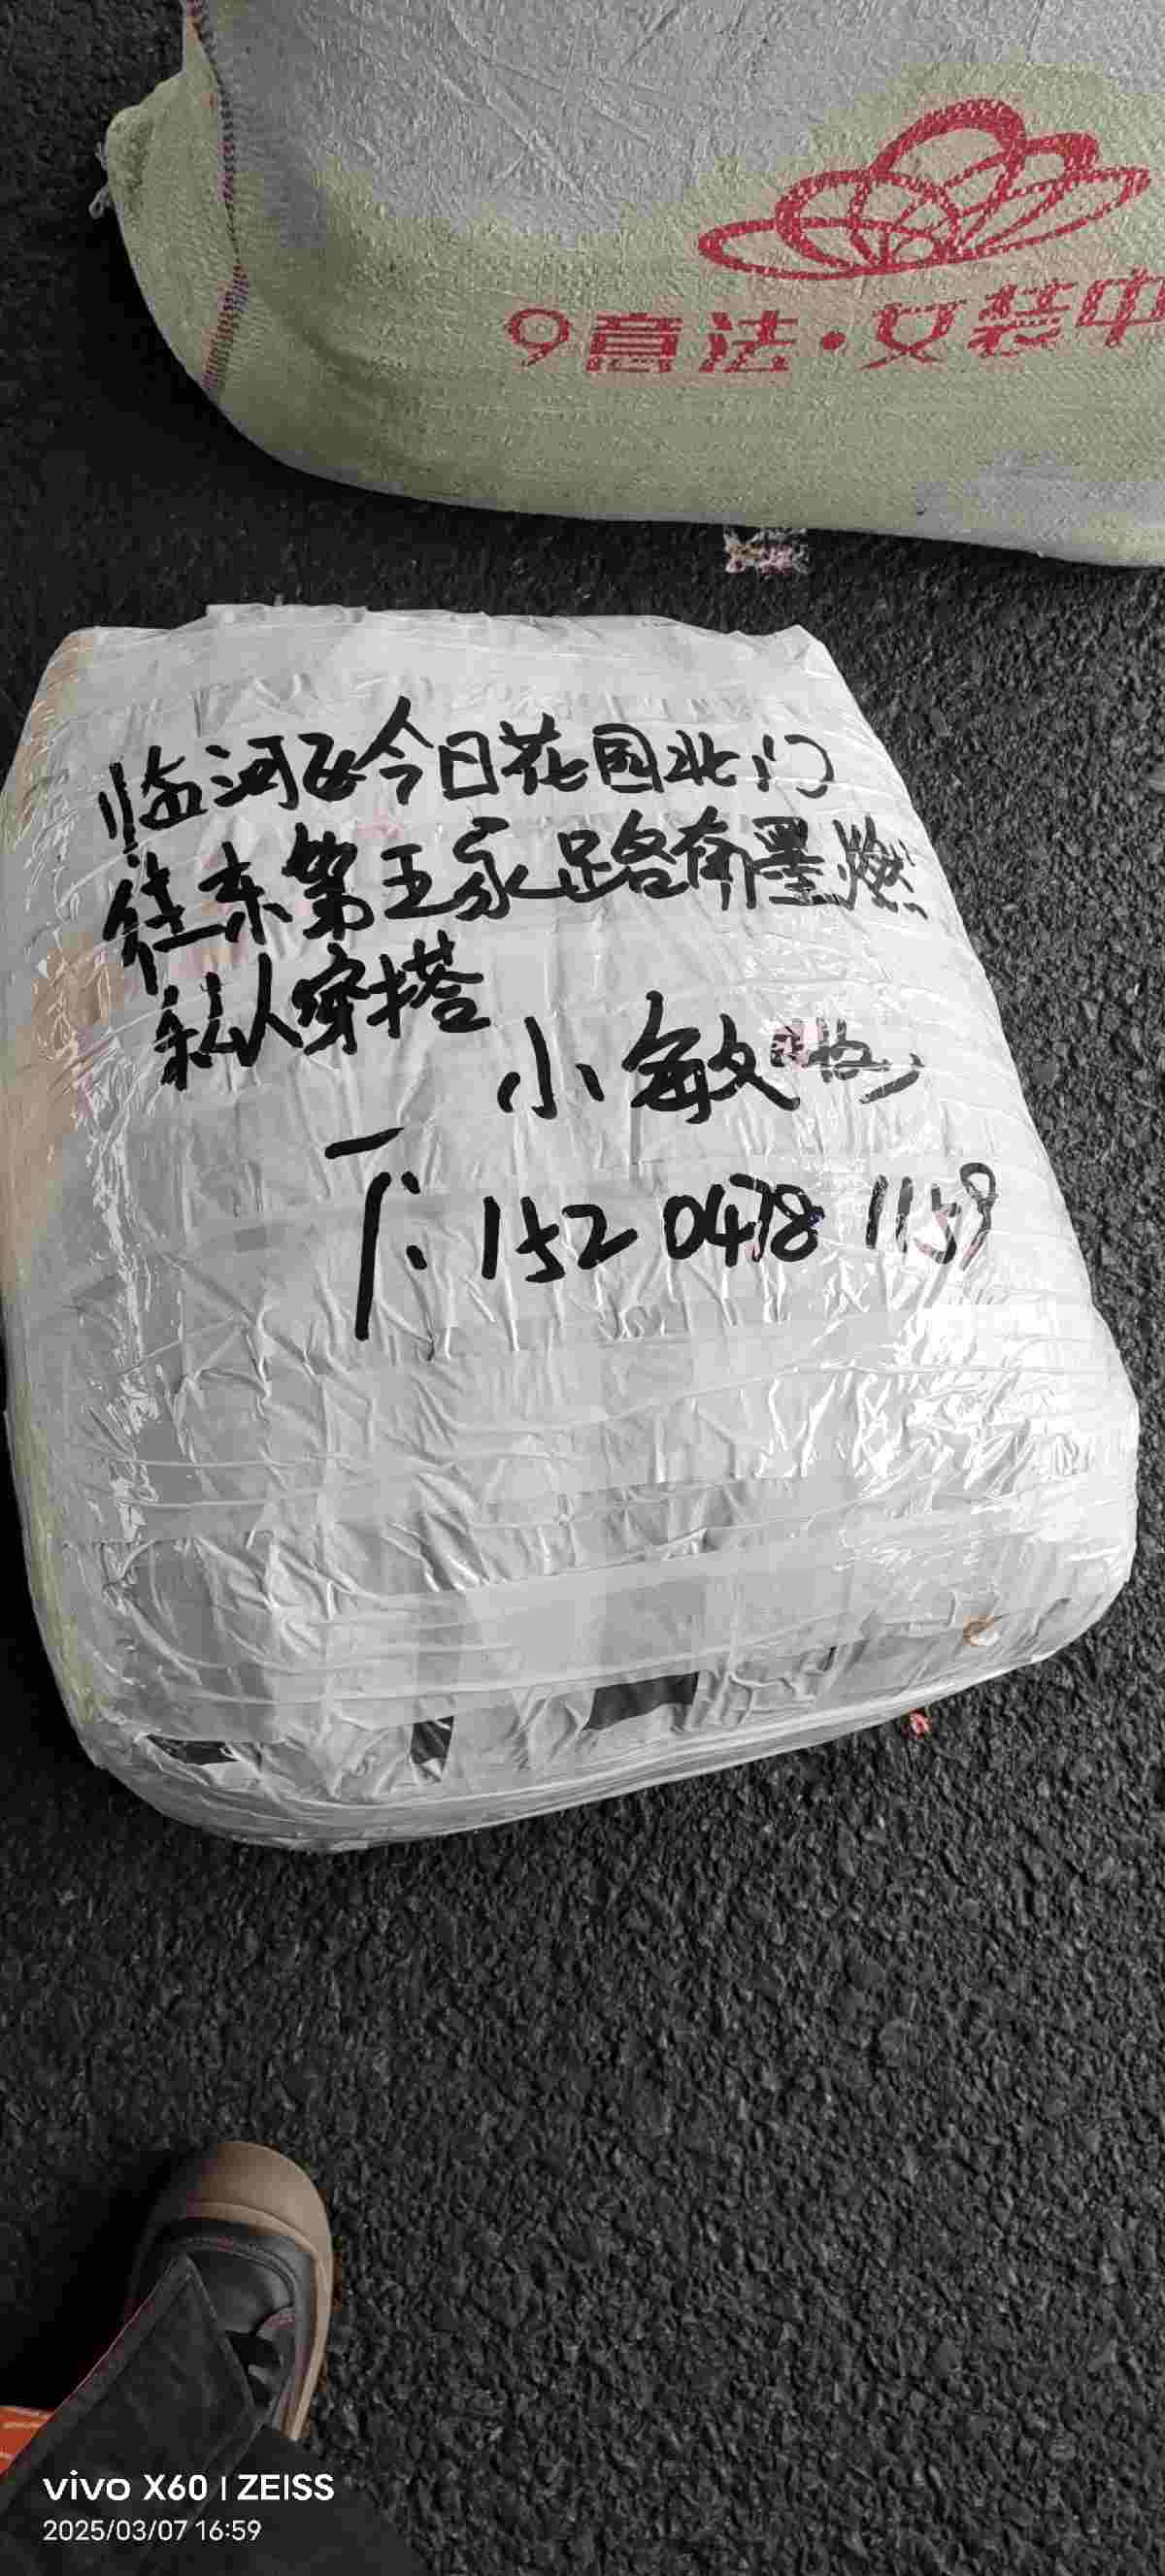 9意法·女装中
临河区今日花园北门
往东第五家路南墨燃
私人穿搭
小敏 收
下: 152 0478 1159
vivo X60 | ZEISS
2025/03/07 16:59